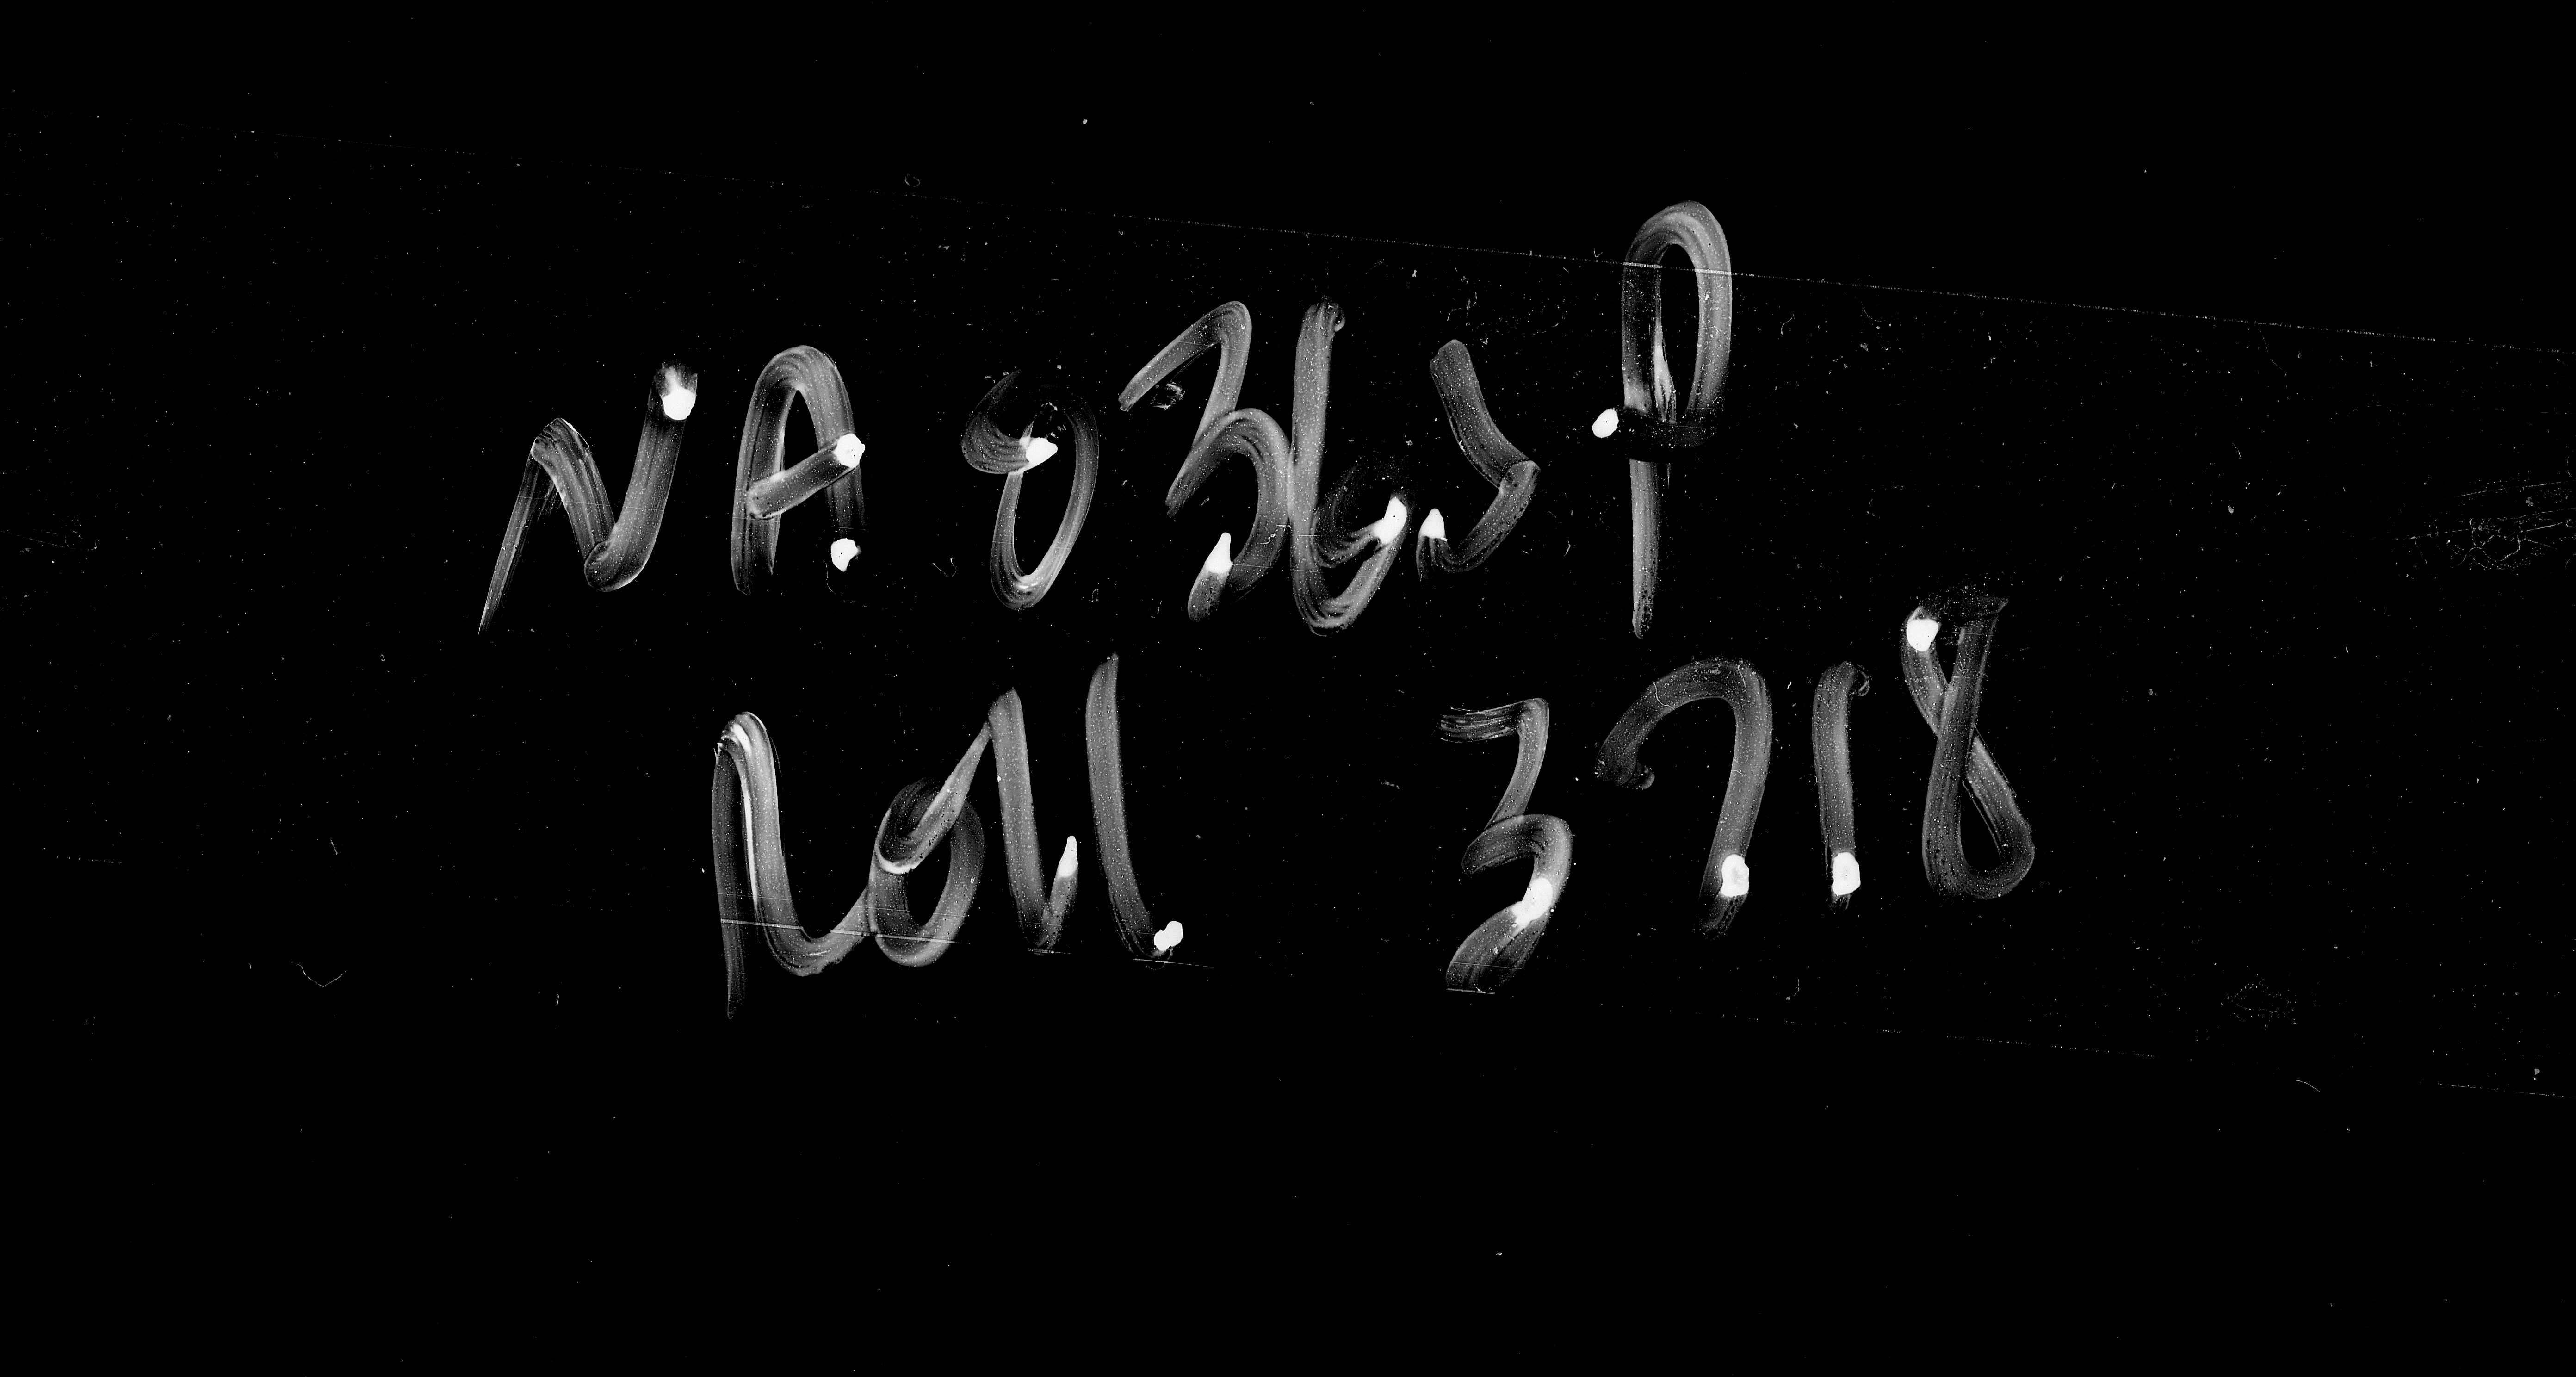 NA 036SP
Roll 3718